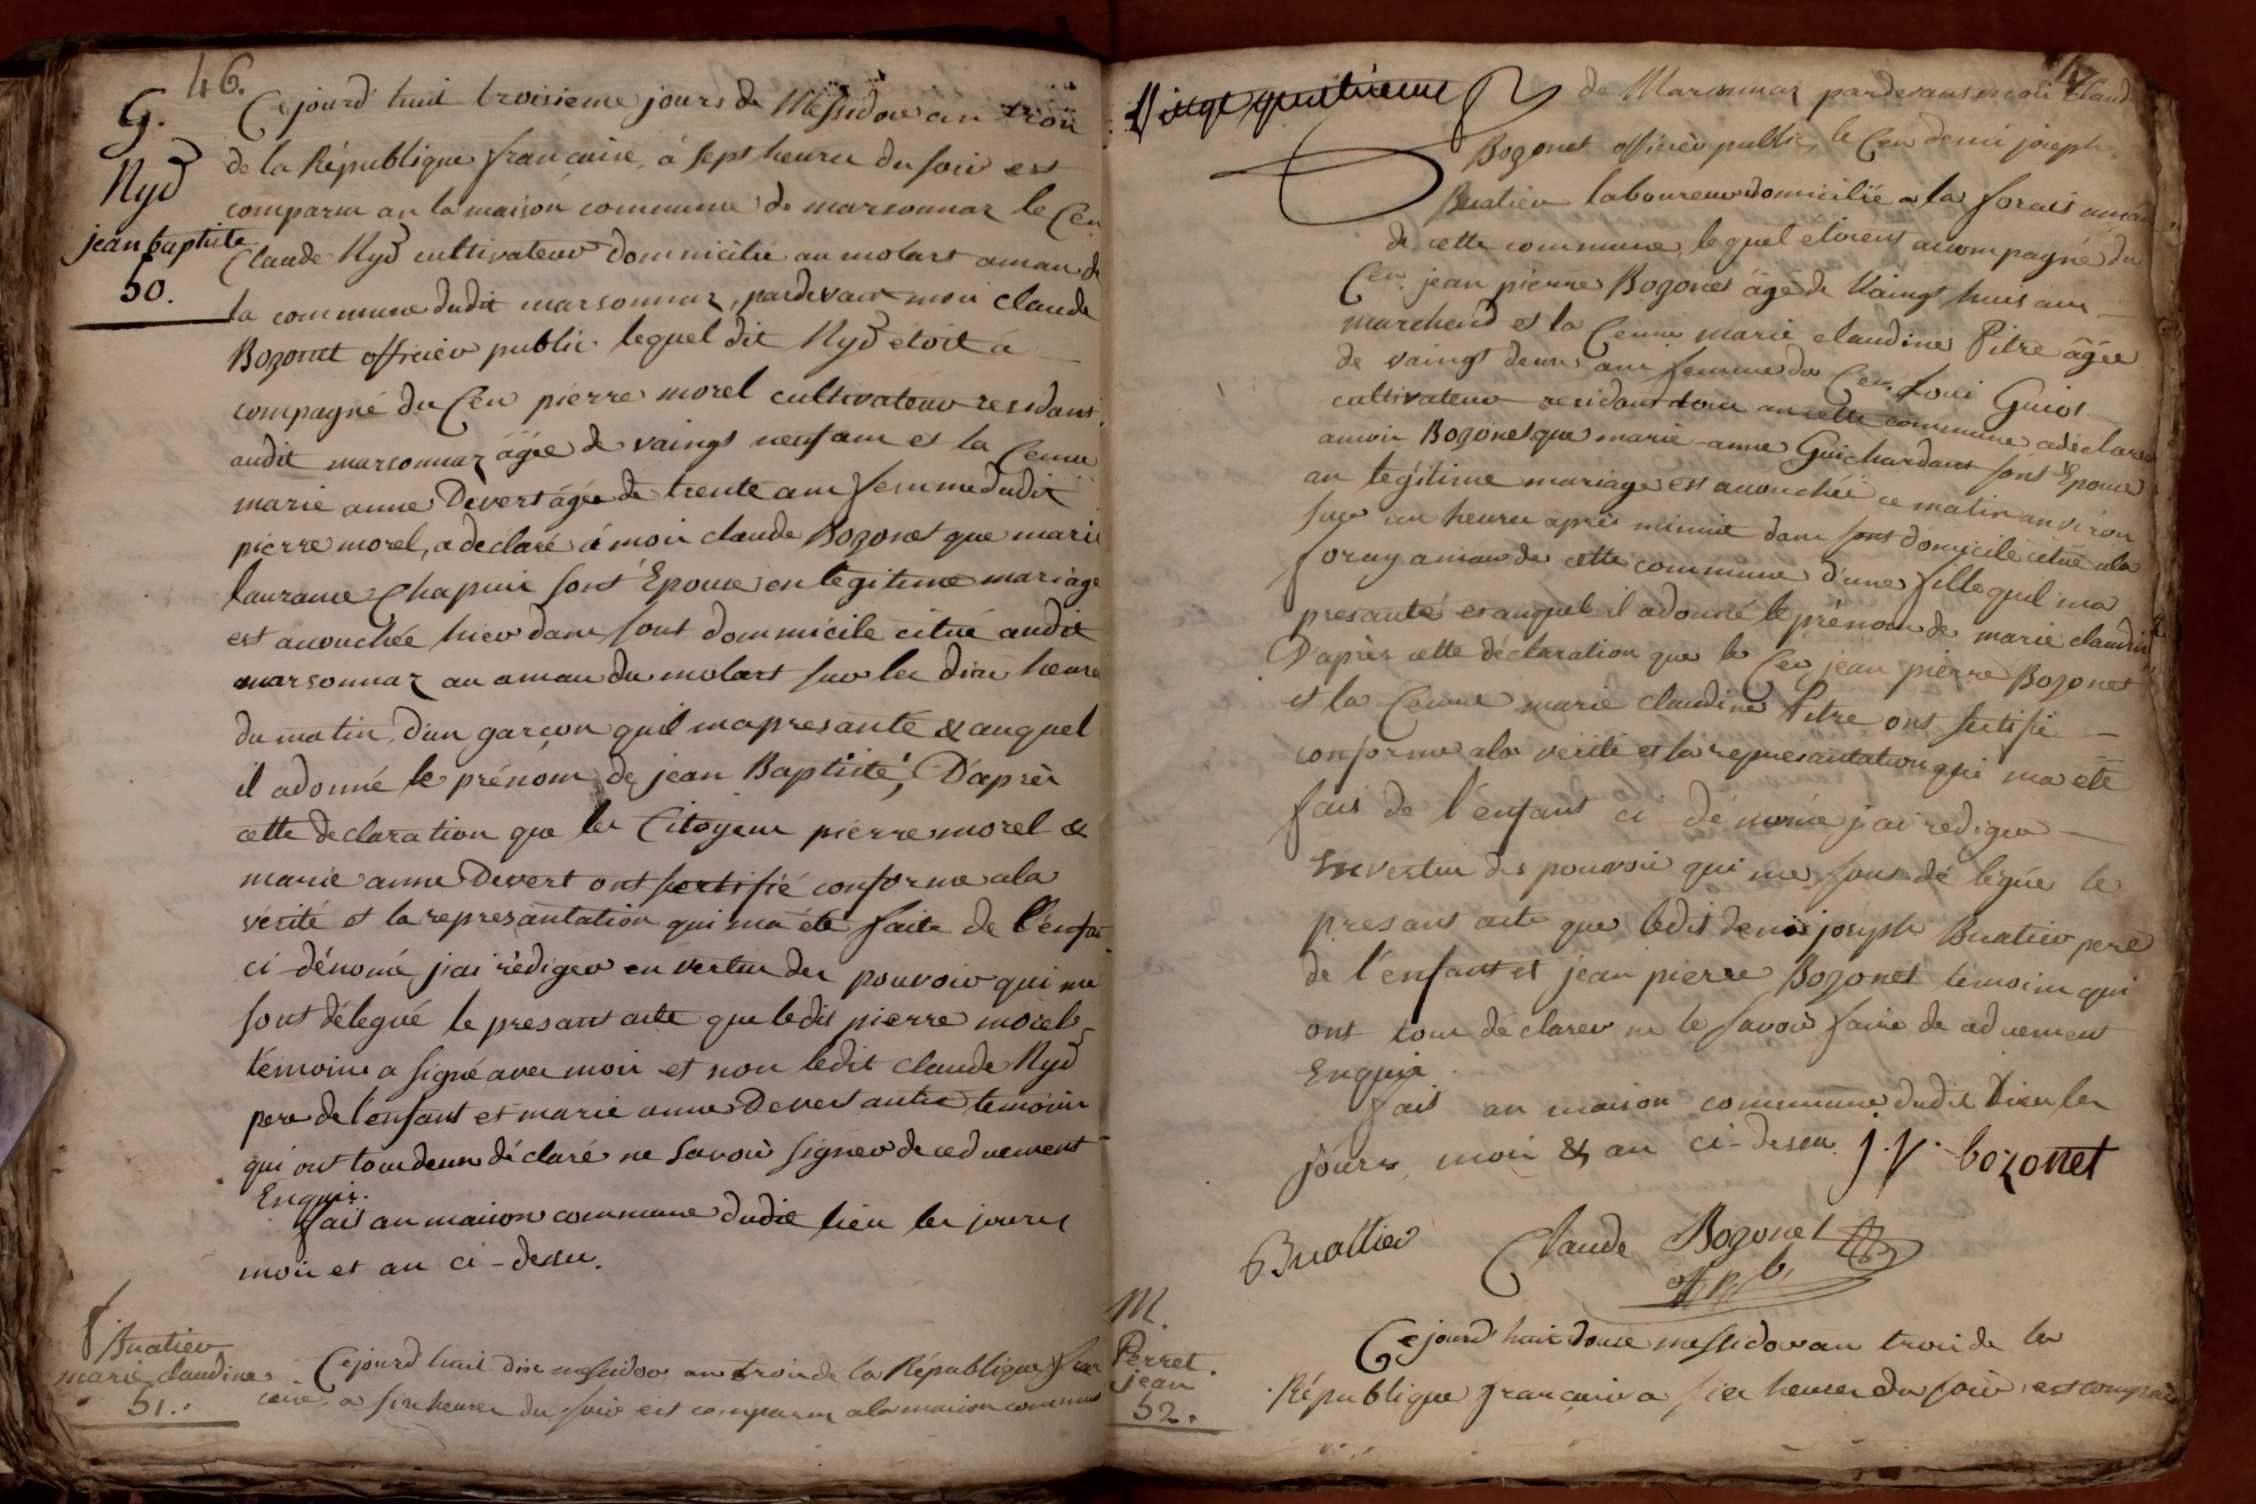 46.
G.
Nyd
jean baptiste
50.
Cejourd'huit troisieme jours de Messidor an troii
de la République francaise, á sept heures du soir est
comparu an la maison commune de marsonnaz le Cen
Claude Nyd cultivateur dommicilié au molart aman de
la commune dudit marsonnaz, pardevant moii claude
Bozonet officier public lequel dit Nyd etoit á
compagné du Cen pierre morel cultivateur residant
audit marsonnaz âgée de vaingt neufans et la Cenne
marie anne Devert âgée de trente ans femme dudit
pierre morel, a déclaré á moii claude Bozonet que marie
laurance Chapuii sont Epouse en legitime mariage
est acouchée hier dans sont dommicile citué audit
marsonnaz au aman du molart sur les dix heure
du matin, d'un garçon quil mapresanté & auquel
il adonné le prénom de jean Baptiste, D'aprèr
cette declaration que les Citoyens pierre morel &
marie anne Devert ont sertifié conforme ala
vérité et la represantation qui ma été faite de l'enfan
ci-dénomé j'ai rédiger en vertu des pouvoir qui me
sont délegué le presant acte que ledit pierre morel
témoins a signé avec moii et non ledit claude Nyd
pere de l'enfant et marie anne Devert autre temoins
qui ont tous deux déclaré ne savoir signer de ce duement
Enquis.
fait an maison commune dudit lieu les jours
moii et an ci-dessu.
f.
Buatier
marie claudine
51.
Cejourd'huit dix messidor an troii de la République fran
caise a six heures du soir est comparu ala maison commune
Vingt quatrieme
de Marsonnaz pardevant moii Claude
Bozonet officier public, le Cen denii joseph
Buatier laboureur domicilié a la forais aman
de cette commune, lequel étoient accompagné du
Cen jean pierre Bozonet âgé de Vaingt huit ans
marchend et la Cenne marie claudine Pitre âgée
de vaingt deux ans femme du Cen Loui Guiot
cultivateur residant tous an cette commune a déclaré
amoii Bozonet que marie-anne Guichardant sont Epouse
an legitime mariage est acouchée ce matin anviron
sur un heures après minuit dans sont domicile citué ala
foray aman de cette commune d'une fille quil ma
presanté et auquel il adonné le prénom de marie claudine
D'après cette déclaration que le Cen jean pierre Bozonet
et la Cenne marie claudine Pitre ont sertifié
conforme ala vérité et la represantation qui ma été
fait de l'enfant ci-dénomé j'ai rediger
En vertu des pouvoir qui me sont délégué le
presant acte que ledit denii joseph Buatier pere
de l'enfant et jean pierre Bozonet temoins qui
ont tous déclarer ne le savoir faire de ce duement
Enquis
fait an maison commune dudit lieu les
jours moii & an ci-dessu. j. p. bozonet
Buattier Claude Bozonet
off. pb.
M.
Perret
jean
52.
Cejourd'huit douse messidor an troii de la
République francaise a six heures du soir est comparu